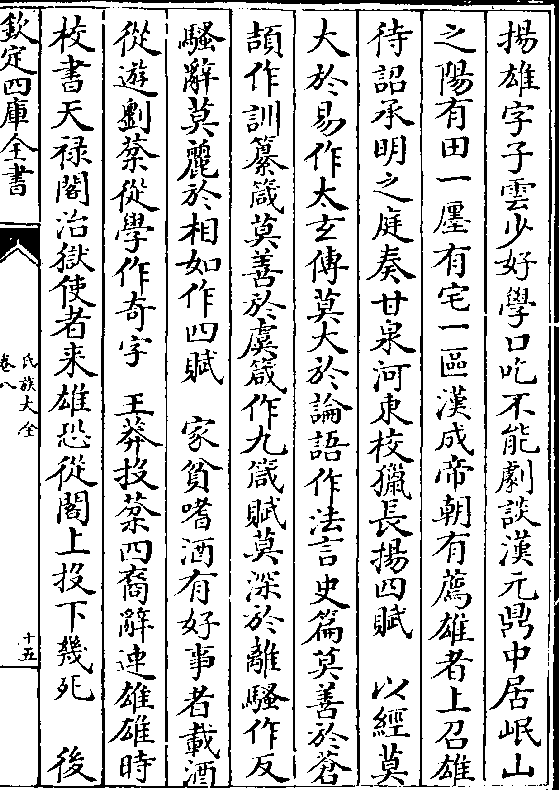 揚雄字子雲少好學口吃不能劇談漢元鼎中居岷山
之陽有田一㕓有宅一區漢成帝朝有薦雄者上召雄
待詔承明之庭奏甘泉河東校獵長揚四賦　以經莫
大於易作太玄傳莫大於論語作法言史篇莫善於蒼
頡作訓纂箴莫善於虞箴作九箴賦莫深於離騷作反
騷辭莫麗於相如作四賦　家貧嗜酒有好事者載酒
從遊劉棻從學作奇字　王莽投棻四裔辭連雄雄時
校書天禄閣治獄使者来雄恐從閣上投下幾死　後
欽定四庫全書
氏族大全
卷八
十五